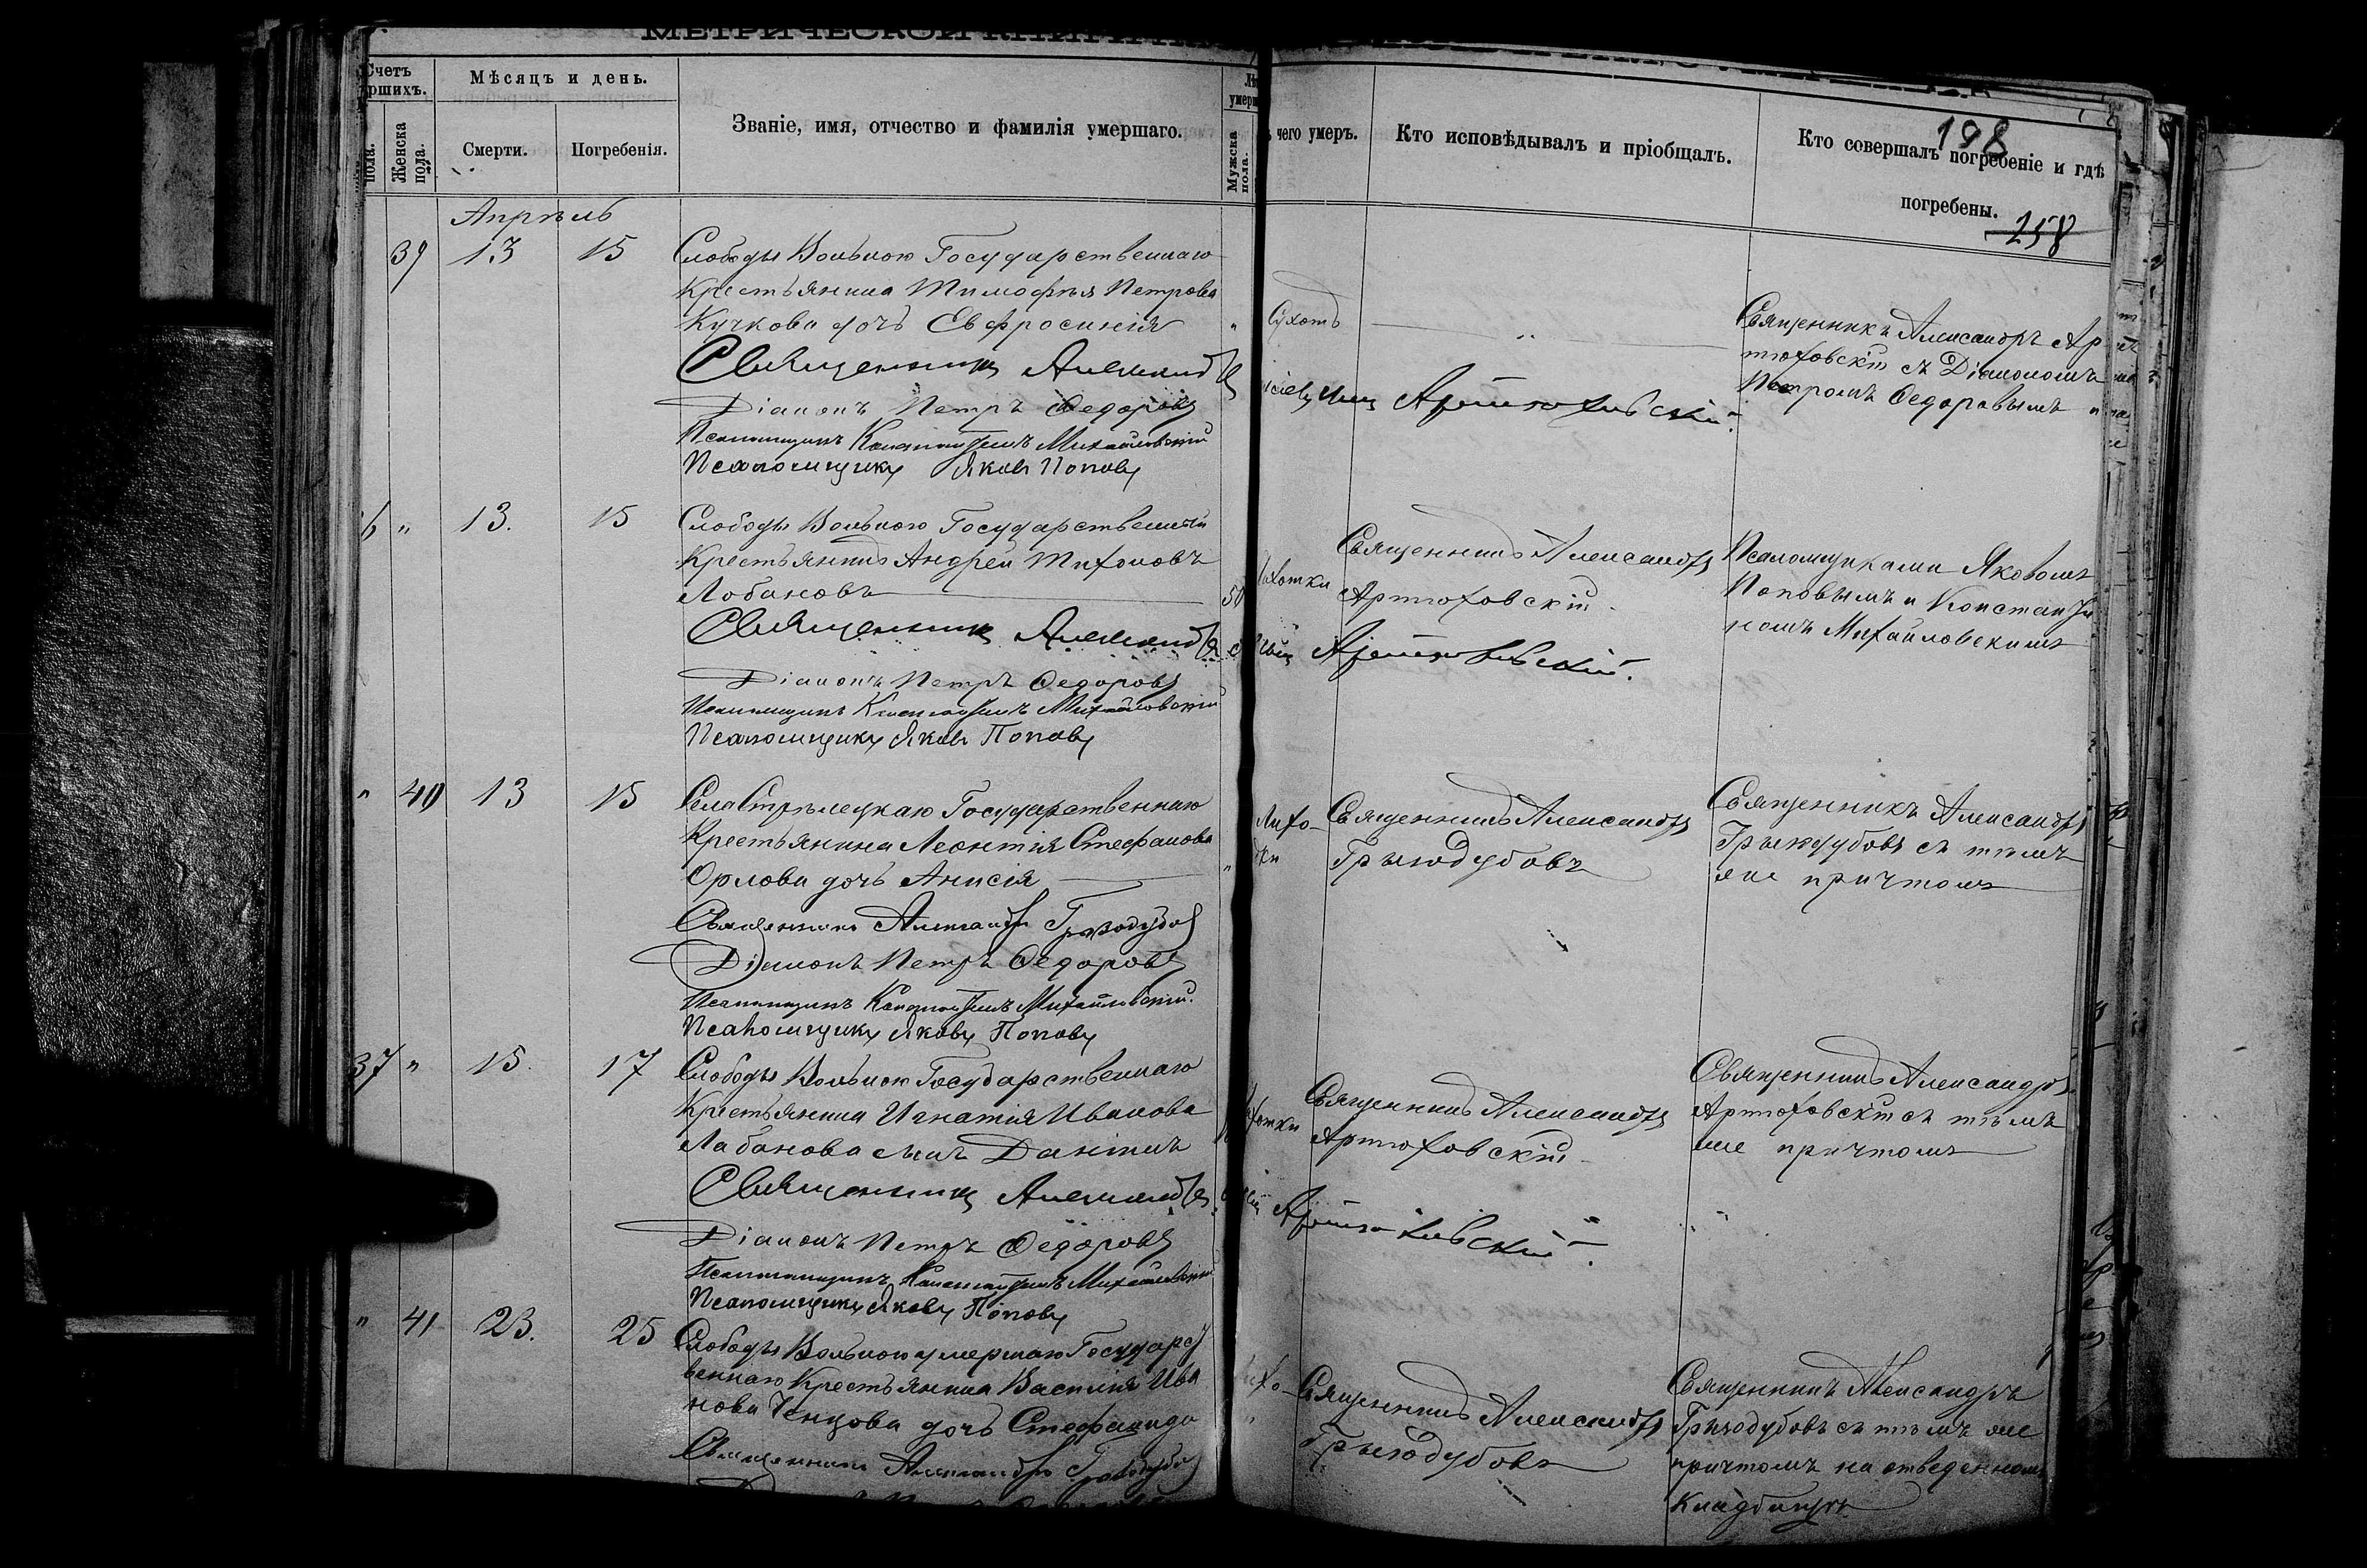 МЕТРИЧЕСКОЙ КНИГИ
Счетъ
Мѣсяцъ и день.
Званіе, имя, отчество и фамилія умершаго.
Женска пола.
Смерти.
Погребенія.
Мужска пола.
чего умеръ.
Кто исповѣдывалъ и пріобщалъ.
Кто совершалъ погребеніе и гдѣ
погребены.
198
258
Апрѣль
39 13 15 Слободы Вольною Государственнаго
Крестьянина Тимофѣя Петрова
Кучкова дочь Евфросинія
Священникъ Александръ
Діаконъ Петръ Федоровъ
Псаломщикъ Константинъ Михайловскій
Псаломщикъ Яковъ Поповъ
Артюховскій
Священникъ Александръ Ар
тюховскій съ Діакономъ
Петромъ Федоровымъ и
" 13. 15 Слободы Вольною Государственный
Крестьянинъ Андрей Тихоновъ
Лобановъ
Священникъ Александръ
Діаконъ Петръ Федоровъ
Псаломщикъ Константинъ Михайловскій
Псаломщикъ Яковъ Поповъ
Священникъ Александръ
Артюховскій
Артюховскій.
Псаломщиками Яковомъ
Поповымъ и Константи
номъ Михайловскимъ
" 40 13 15 Села Стрѣлецкаго Государственнаго
Крестьянина Леонтія Стефанова
Орлова дочь Анисія
Священникъ Александръ Грызодубовъ
Діаконъ Петръ Федоровъ
Псаломщикъ Константинъ Михайловскій.
Псаломщикъ Яковъ Поповъ
Священникъ Александръ
Грызодубовъ
Священникъ Александръ
Грызодубовъ съ тѣмъ
же причтомъ
37 " 15. 17 Слободы Вольною Государственнаго
Крестьянина Игнатія Иванова
Лабанова сынъ Даніилъ
Священникъ Александръ
Діаконъ Петръ Федоровъ
Псаломщикъ Константинъ Михайловскій
Псаломщикъ Яковъ Поповъ
Священникъ Александръ
Артюховскій
Артюховскій.
Священникъ Александръ
Артюховскій съ тѣмъ
же причтомъ
" 41 23. 25 Слободы Вольною умершаго Государст
веннаго Крестьянина Василія Ива
нова Ченцова дочь Стефанида
Священникъ Александръ Грызодубовъ
Священникъ Александръ
Грызодубовъ
Священникъ Александръ
Грызодубовъ съ тѣмъ же
причтомъ на отведенномъ
Кладбищѣ